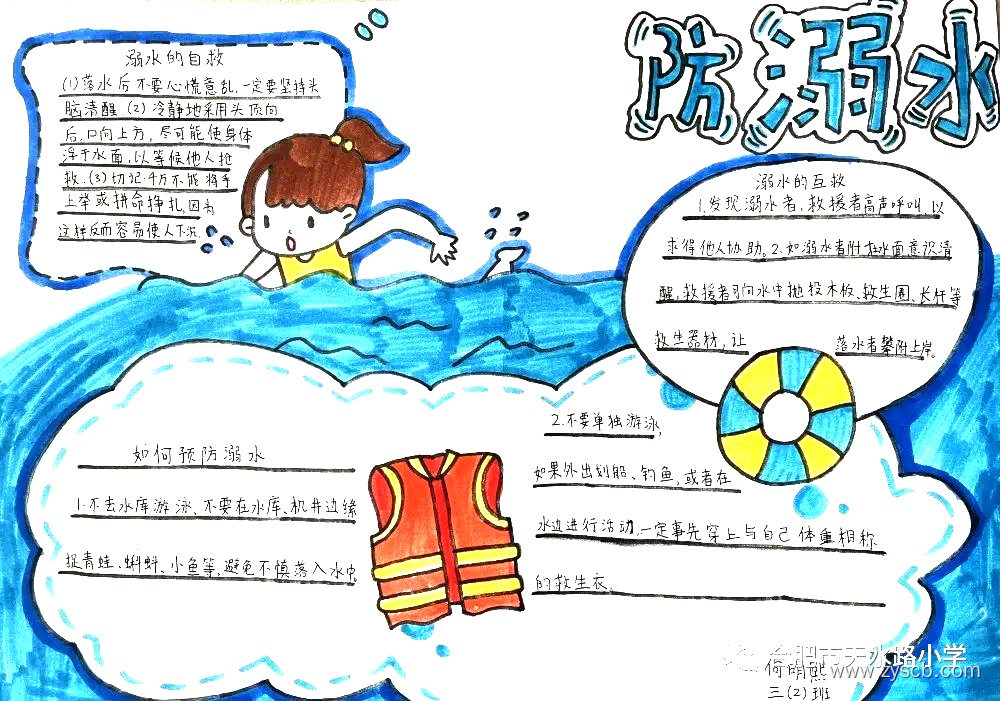 防溺水
溺水的自救
(1)落水后不要心慌意乱,一定要坚持头
脑清醒.(2)冷静地采用头顶向
后,口向上方,尽可能使身体
浮于水面,以等候他人抢
救.(3)切记:千万不能将手
上举或拼命挣扎,因为
这样反而容易使人下沉.
溺水的互救
1.发现溺水者,救援者高声呼叫,以
求得他人协助。2.如溺水者附在水面意识清
醒,救援者可向水中抛投木板、救生圈、长杆等
救生器材,让 落水者攀附上岸。
如何预防溺水
1.不去水库游泳,不要在水库、机井边缘
捉青蛙、蝌蚪、小鱼等,避免不慎落入水中。
2.不要单独游泳,
如果外出划船、钓鱼,或者在
水边进行活动,一定事先穿上与自己体重相称
的救生衣.
合肥市天水路小学
www.zysco.com
三(2)班